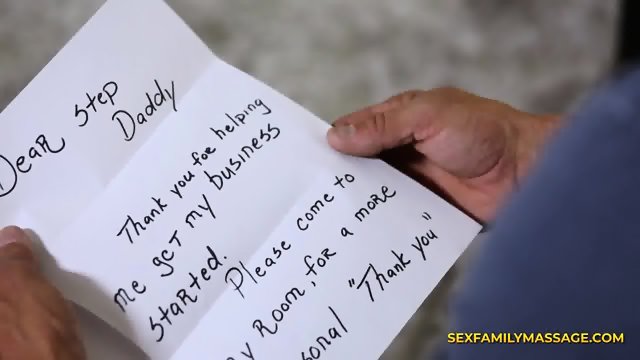 Dear Step
Daddy
Thank you for helping
me get my business
started.
Please come to
Room, for a more
"Thank you"
SEXFAMILYMASSAGE.COM